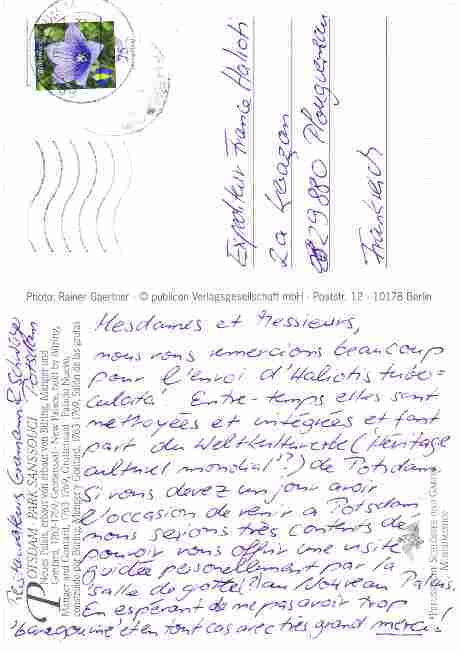 95
Expediteur France Haliotis
La Kvazan
29880 Plouguerneau
Frankreich
Photo: Rainer Gaertner · © publicon Verlagsgesellschaft mbH · Poststr. 12 · 10178 Berlin
Mesdames et Messieurs,
nous vous remercions beaucoup
pour l'envoi d'Haliotis tuber=
culata. Entre-temps elles sont
nettoyées et intégrées et font
part du Weltkulturerbe (Héritage
culturel mondial'?) de Potsdam.
Si vous devez un jour avoir
l'occasion de venir à Potsdam
nous serions très contents de
pouvoir vous offrir une visite
guidée personellement par la
'salle de grotte' au Nouveau Palais.
En espérant de ne pas avoir trop
'baragouiné' et en tout cas avec très grand merci!
Restaurateurs
Potsdam
POTSDAM · PARK SANSSOUCI
Neues Palais, erbaut von Büring, Manger und
Gontard, 1763-1769, Grottensaal · New Palace, built by Büring,
Manger and Gontard, 1763-1769, Grottensaal · Palacio Nuevo,
construido por Büring, Manger y Gontard, 1763-1769, Salón de las grutas